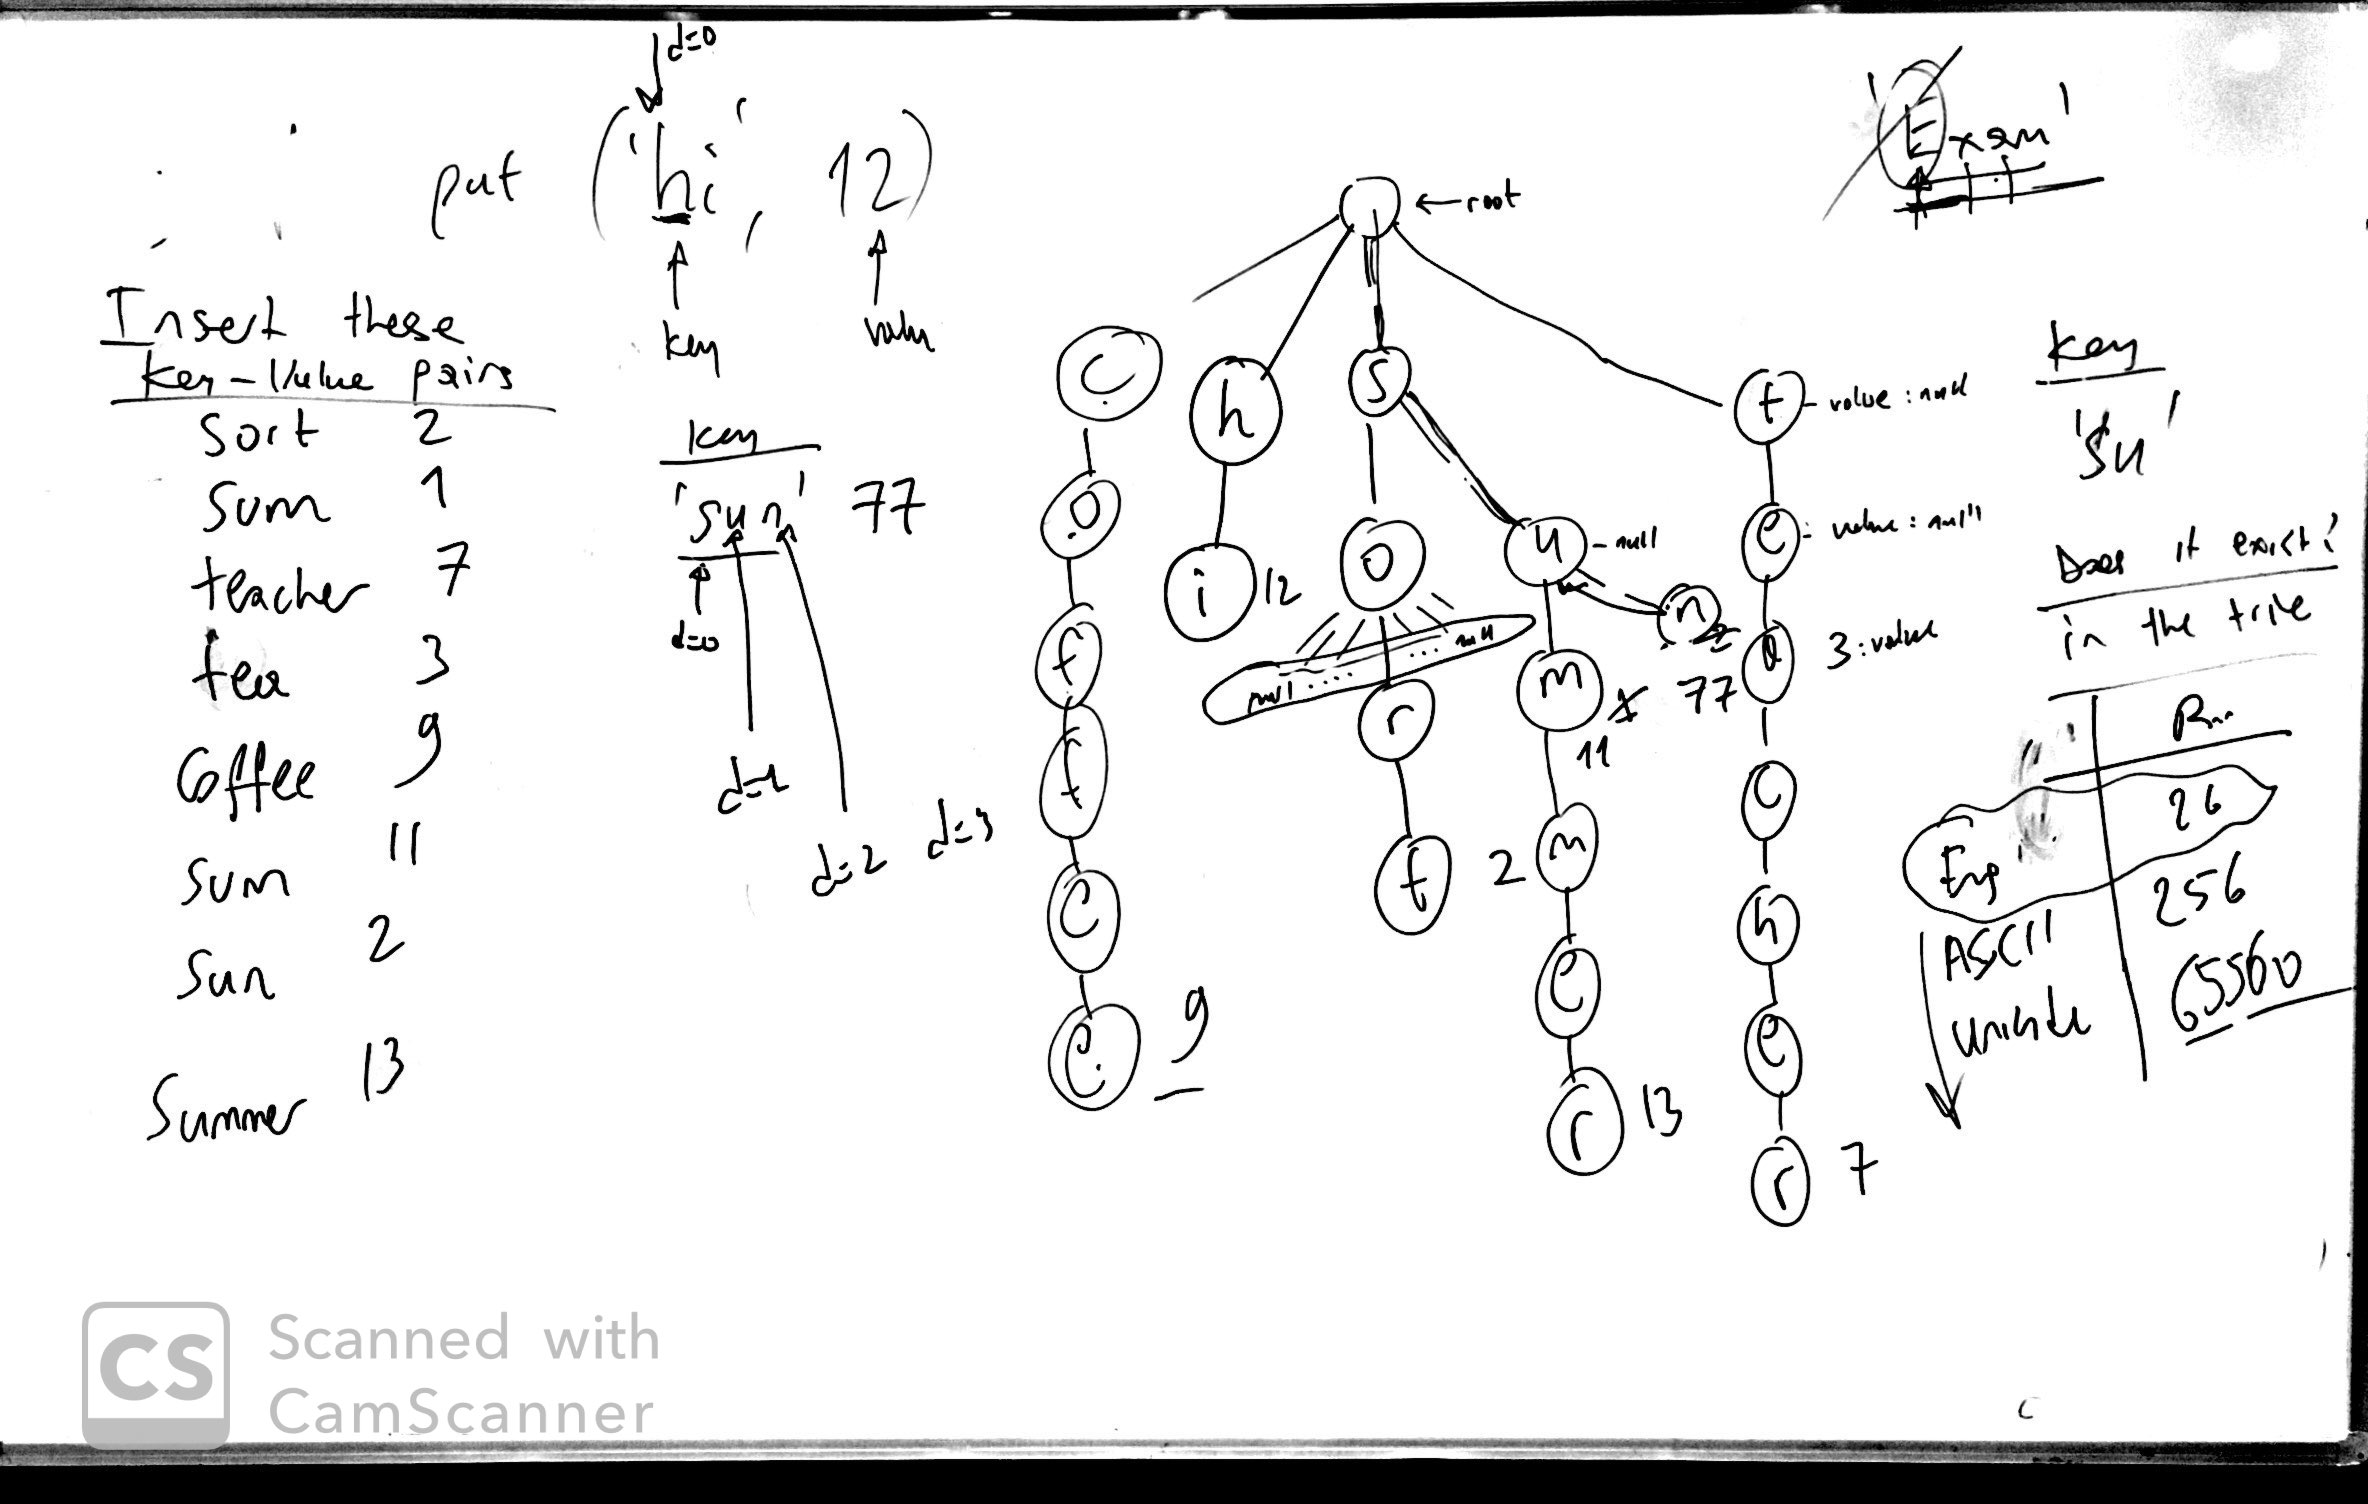 d=0
put ('hi', 12)
key
Insert these
key - Value pairs
Sort 2
Sum 1
teacher 7
tea 3
Coffee 9
Sum 11
Sun 2
Summer 13
key
'sun' 77
d=0
d=1
d=2
d=3
← root
C
o
f
f
e
e 9
h
i 12
S
o
null ..... .... null
r
t 2
u - null
n 2 77
m 1
11
m
e
r 13
t - value : null
e : value : null
a 3 : value
c
h
e
r 7
'Exam'
key
'su'
Does it exist?
in the trie
Eng 26
ASCII 256
65560
Scanned with
CamScanner
CS